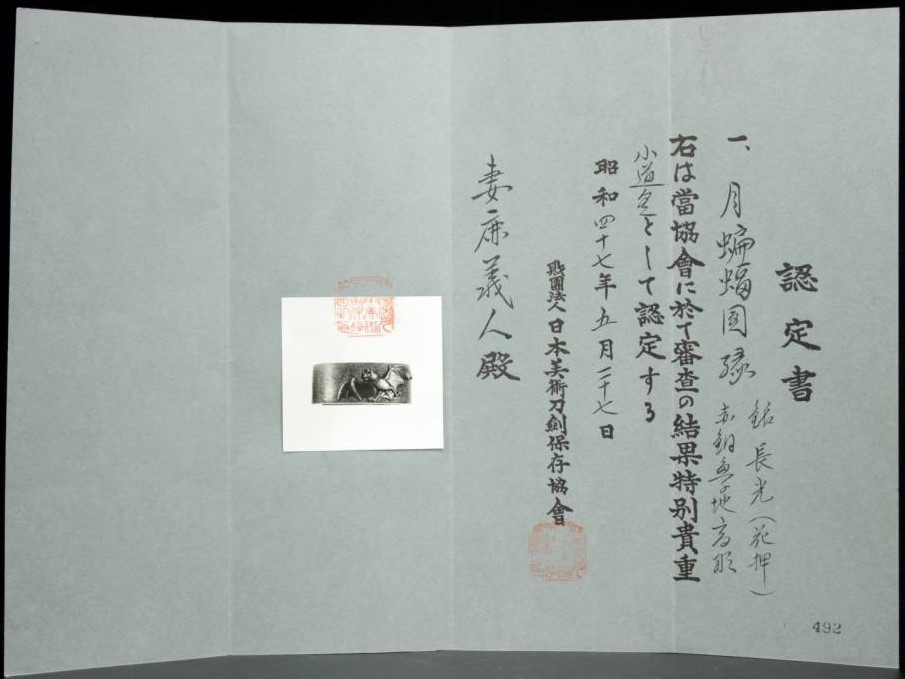 認定書
一、月蝙蝠図縁
銘 長光(花押)
赤銅魚子地高彫
右は當協會に於て審査の結果特別貴重
小道具として認定する
昭和四十七年五月二十七日
財團法人日本美術刀劍保存協會
妻鹿義人殿
492